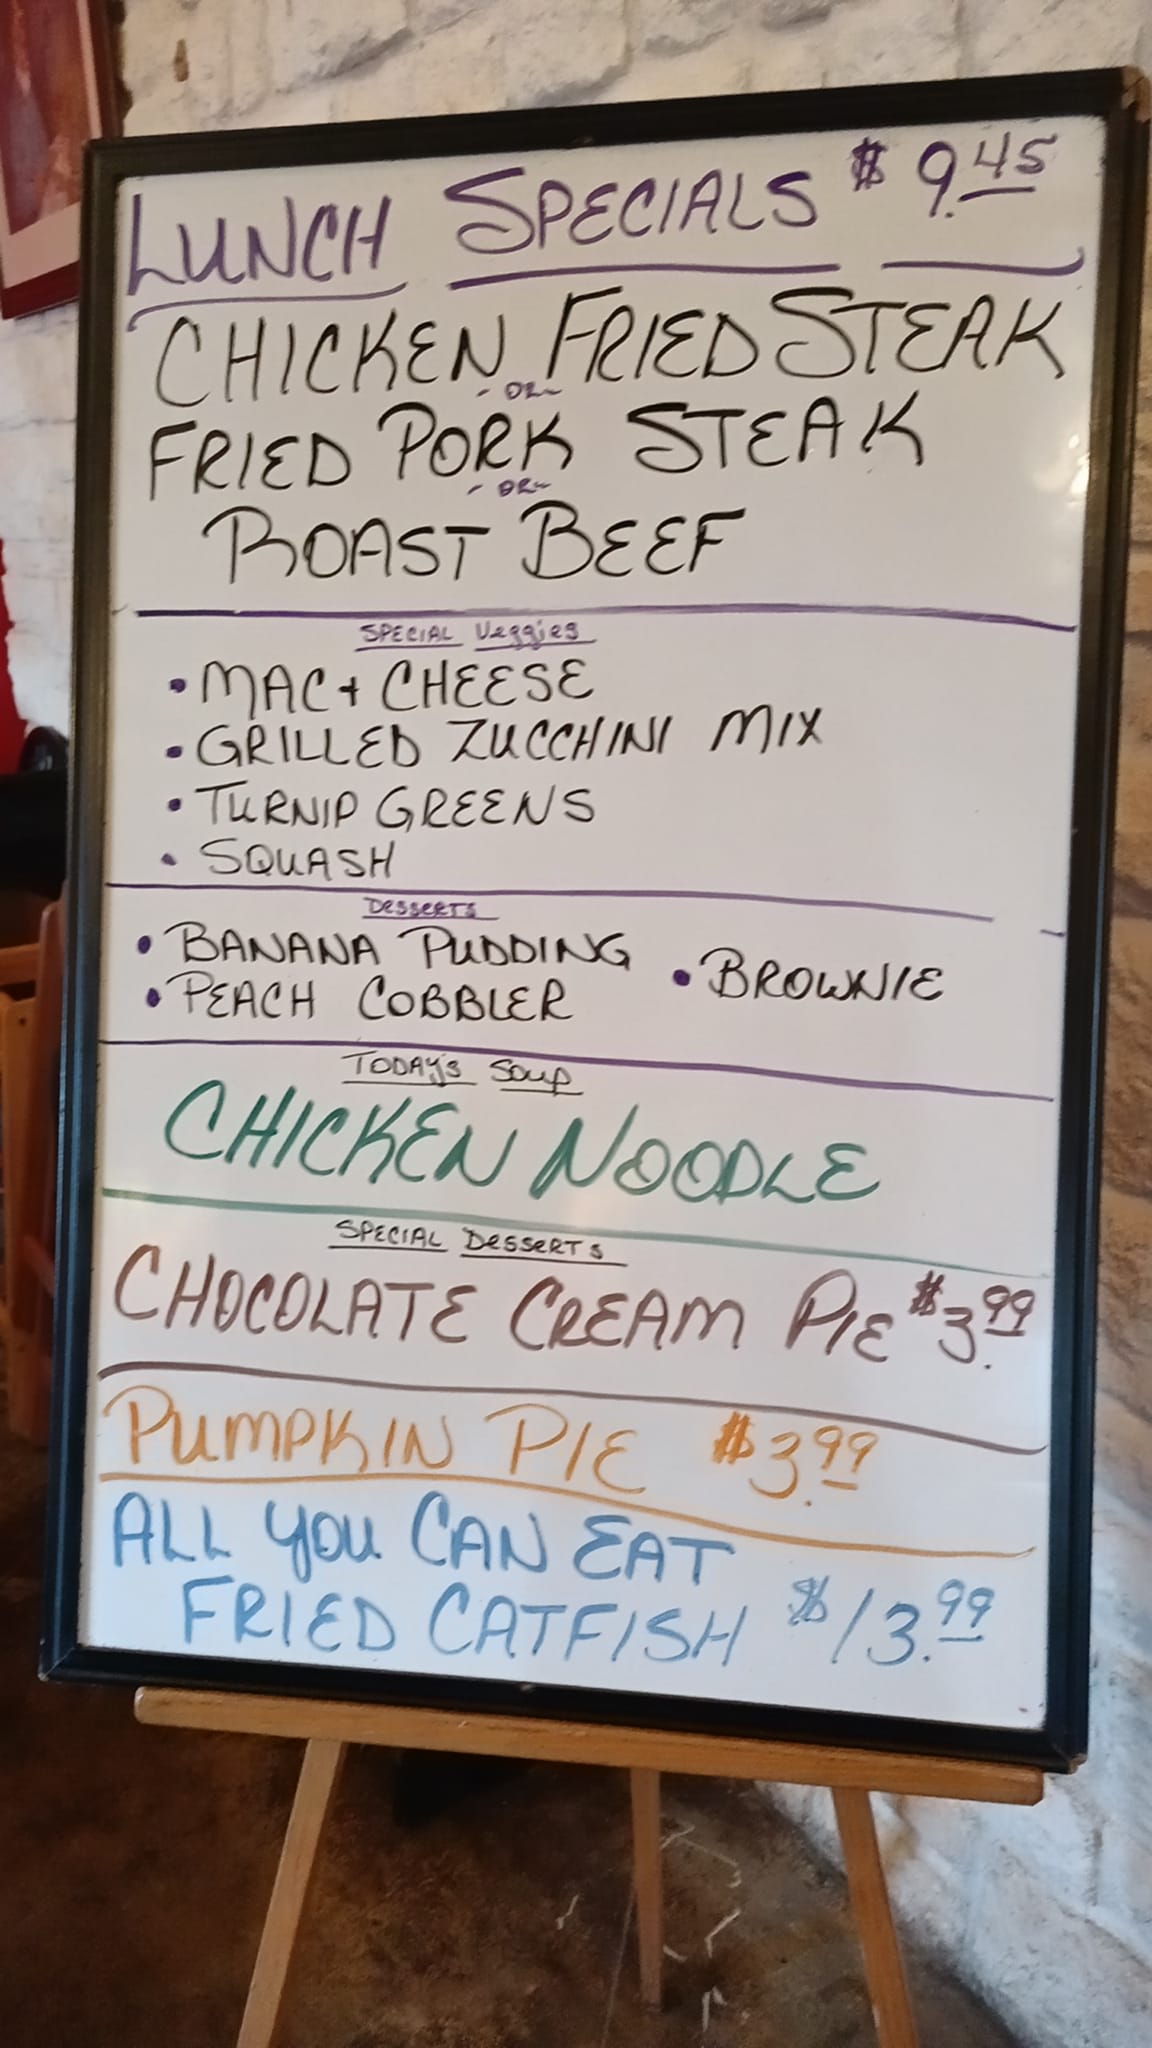 LUNCH SPECIALS $9.45
CHICKEN FRIED STEAK
- OR -
FRIED PORK STEAK
- OR -
ROAST BEEF
SPECIAL Veggies
• MAC + CHEESE
• GRILLED ZUCCHINI MIX
• TURNIP GREENS
• SQUASH
DESSERTS
• BANANA PUDDING
• PEACH COBBLER
• BROWNIE
TODAY'S SOUP
CHICKEN NOODLE
SPECIAL DESSERTS
CHOCOLATE CREAM PIE $3.99
PUMPKIN PIE $3.99
ALL YOU CAN EAT
FRIED CATFISH $13.99